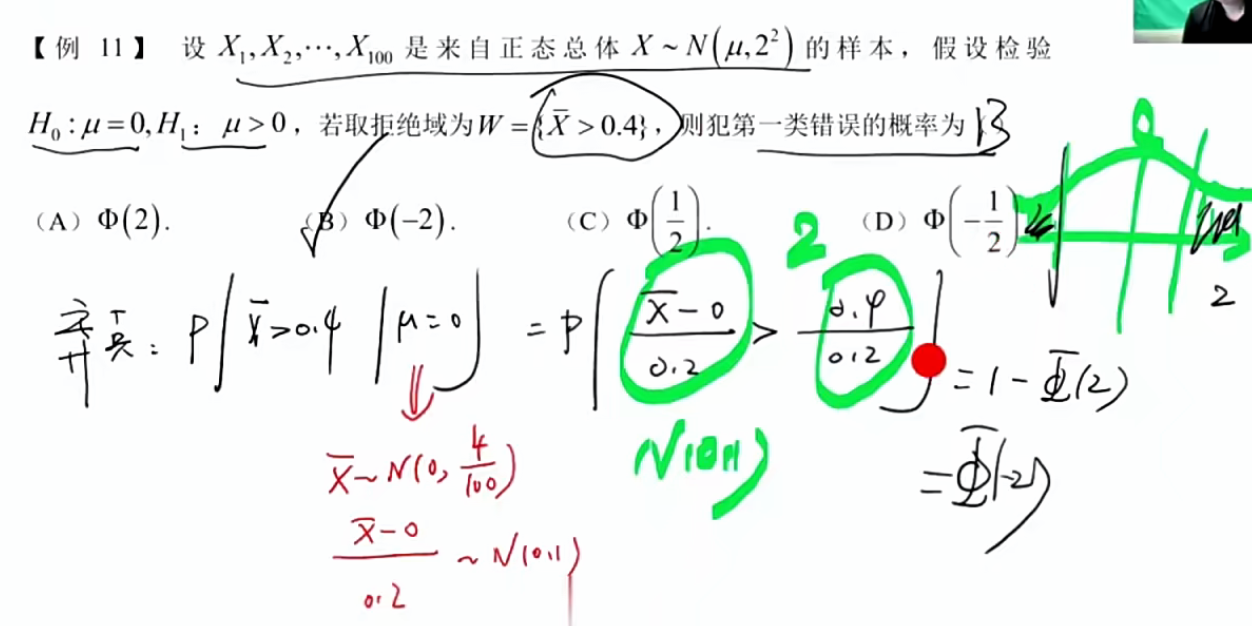 【例 11】 设 X₁,X₂,⋯,X₁₀₀ 是来自正态总体 X ~ N(μ,2²) 的样本，假设检验
H₀:μ=0,H₁: μ>0，若取拒绝域为W={X̄>0.4}，则犯第一类错误的概率为 B
（A）Φ(2). （B）Φ(−2). （C）Φ(1/2). （D）Φ(−1/2)
弃真: P{X̄>0.4 | μ=0} = P{(X̄−0)/0.2 > 0.4/0.2} = 1−Φ(2)
2
0
2
= Φ(−2)
N(0,1)
X̄~N(0, 4/100)
(X̄−0)/0.2 ~ N(0,1)